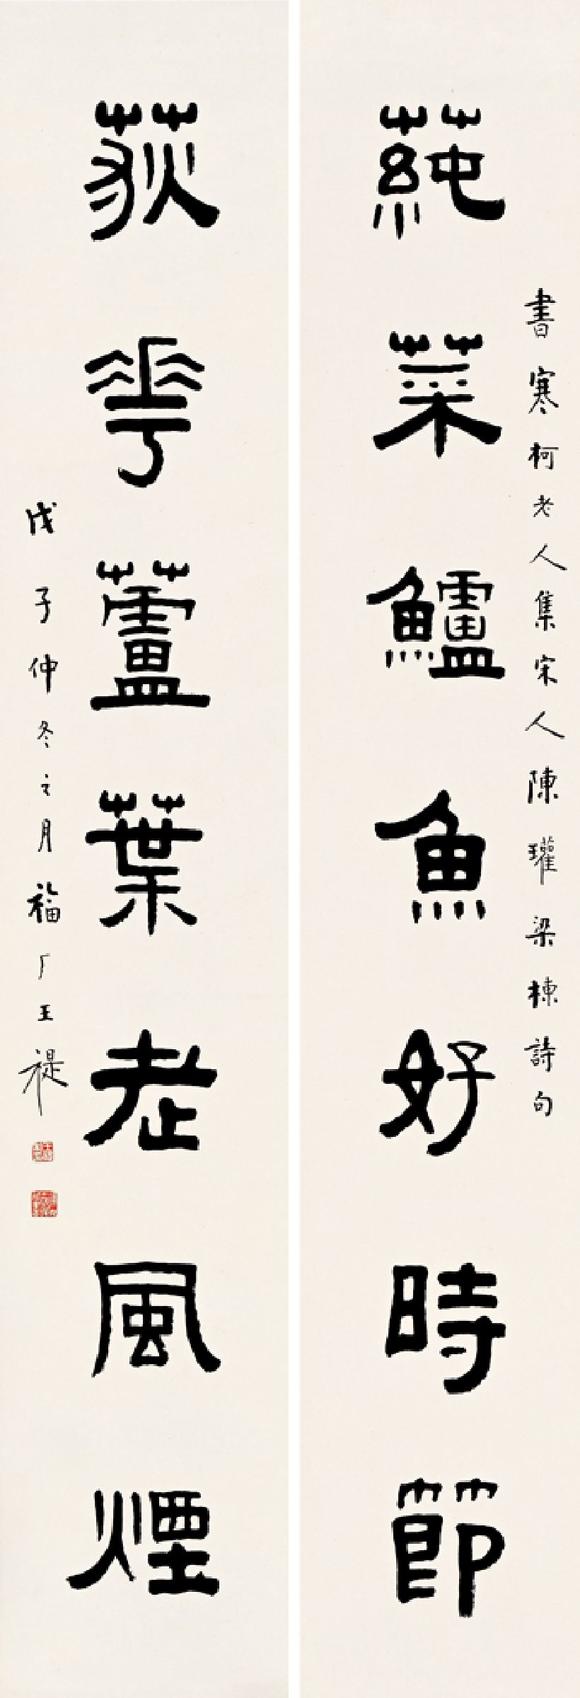 書寒柯老人集宋人陳瓘梁棟詩句
蒓菜鱸魚好時節
荻華蘆葉老風煙
戊子仲冬之月福厂王禔